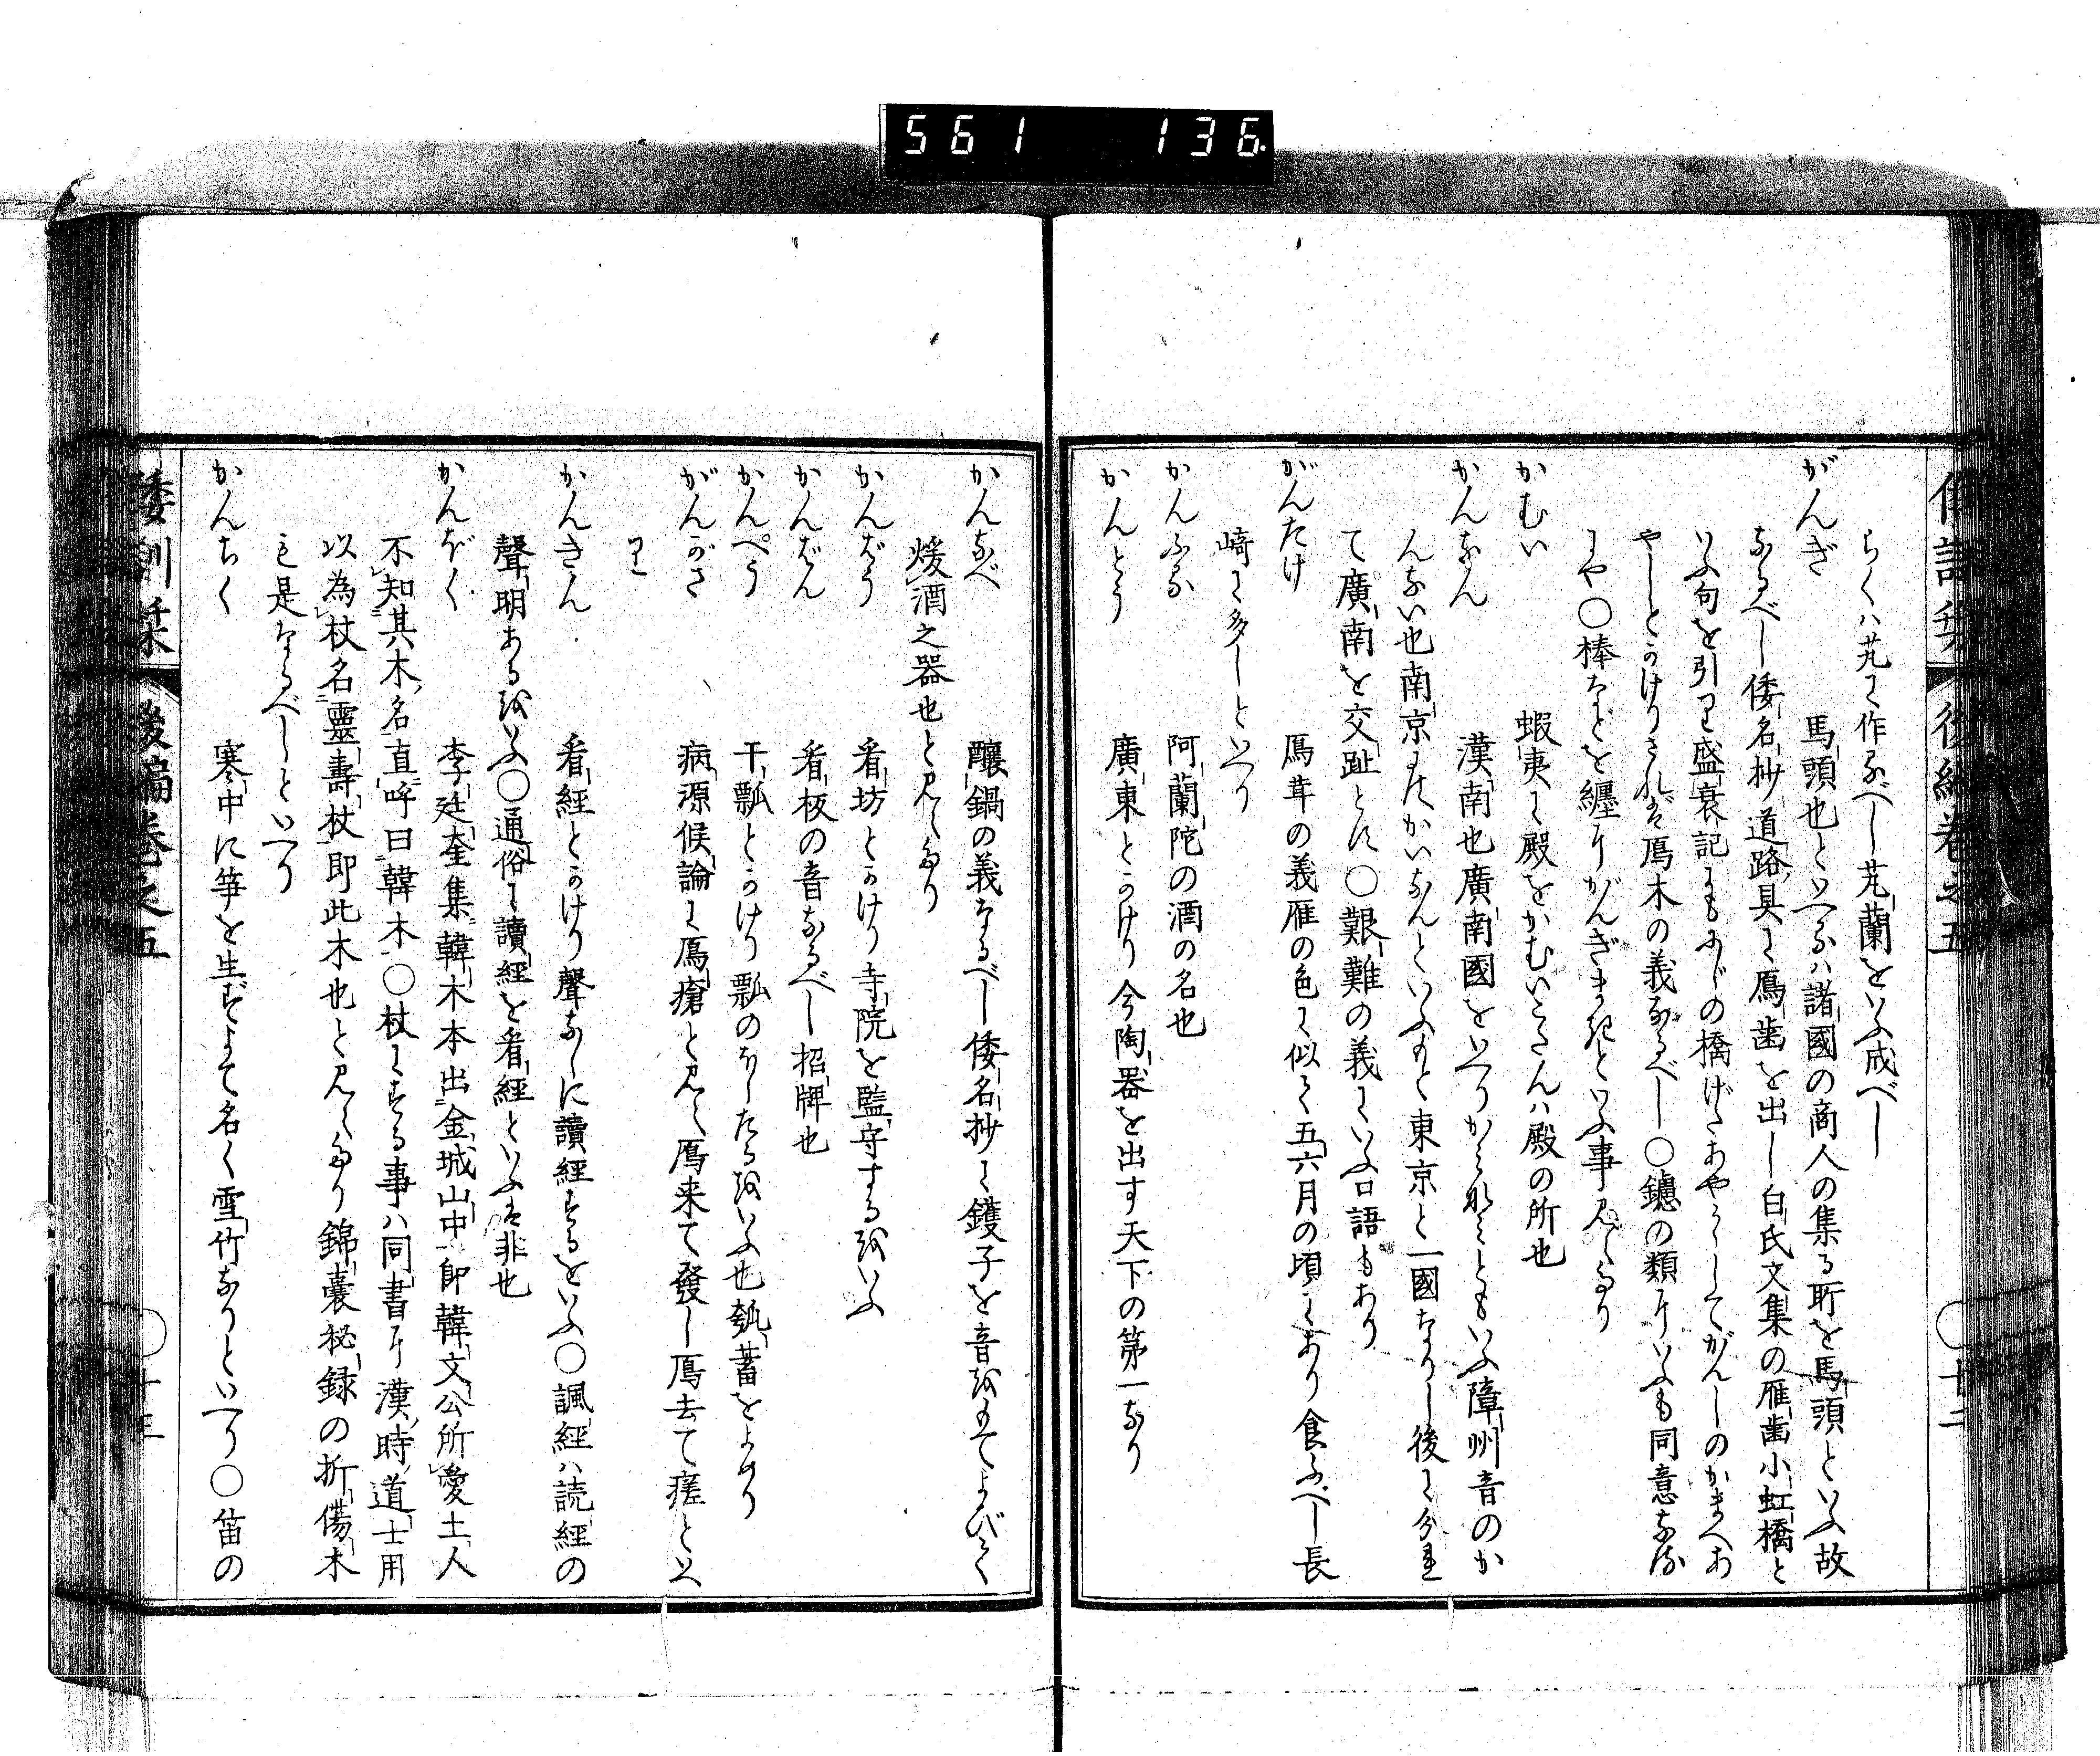 561 136
倭訓栞 後編巻之五 〇十二
らくハ芄に作るべし芄蘭をいふ成べし
がんぎ 馬頭也といへるハ諸國の商人の集る所を馬頭といふ故
なるべし倭名抄道路具に鴈歯を出し白氏文集の雁歯小虹橋と
いふ句を引り盛衰記にもふじの橋げたあやうしてがんしのかまへあ
やしとかけりされば鴈木の義なるべし〇鑢の類にいふも同意なる
にや〇棒などを纏にがんぎまきといふ事見えたり
かむい 蝦夷に殿をかむいといへり
かんなん 漢南也廣南國をいへりかうなんともいふ障州音のか
んない也南京はかいなんといふもと東京と一國なりし後に分れ
て廣南を交趾とす〇艱難の義にいふ口語もあり
がんたけ 鴈茸の義雁の色に似て五六月の頃にあり食ふべし長
崎に多しといへり
かんふな 阿蘭陀の酒の名也
かんとう 廣東とかけり今陶器を出す天下の第一なり
かんなべ 釀鍋の義なるべし倭名抄に鑊子を音をもてよびて
煖酒之器也と見えたり
かんばう 看坊とかけり寺院を監守するをいふ
かんばん 看板の音なるべし招牌也
かんぺう 干瓢とかけり瓢のほしたるをいふ也瓠蓄をよめり
がんがさ 病源候論に鴈瘡と見ゆ鴈来て發し鴈去て瘥といへ
り
かんきん 看經とかけり聲なしに讀經するをいふ〇諷經ハ読經の
聲明あるをいふ〇通俗に讀經を看經といふは非也
かんぼく 李廷奎集韓木本出金城山中即韓文公所愛土人
不知其木名直呼曰韓木〇杖にする事ハ同書に漢時道士用
以為杖名靈壽杖即此木也と見えたり錦嚢秘録の折傷木
も是なるべしといへり
かんちく 寒中に笋を生ずよて名く雪竹なりといへり〇笛の
倭訓栞 後編巻之五 〇十三